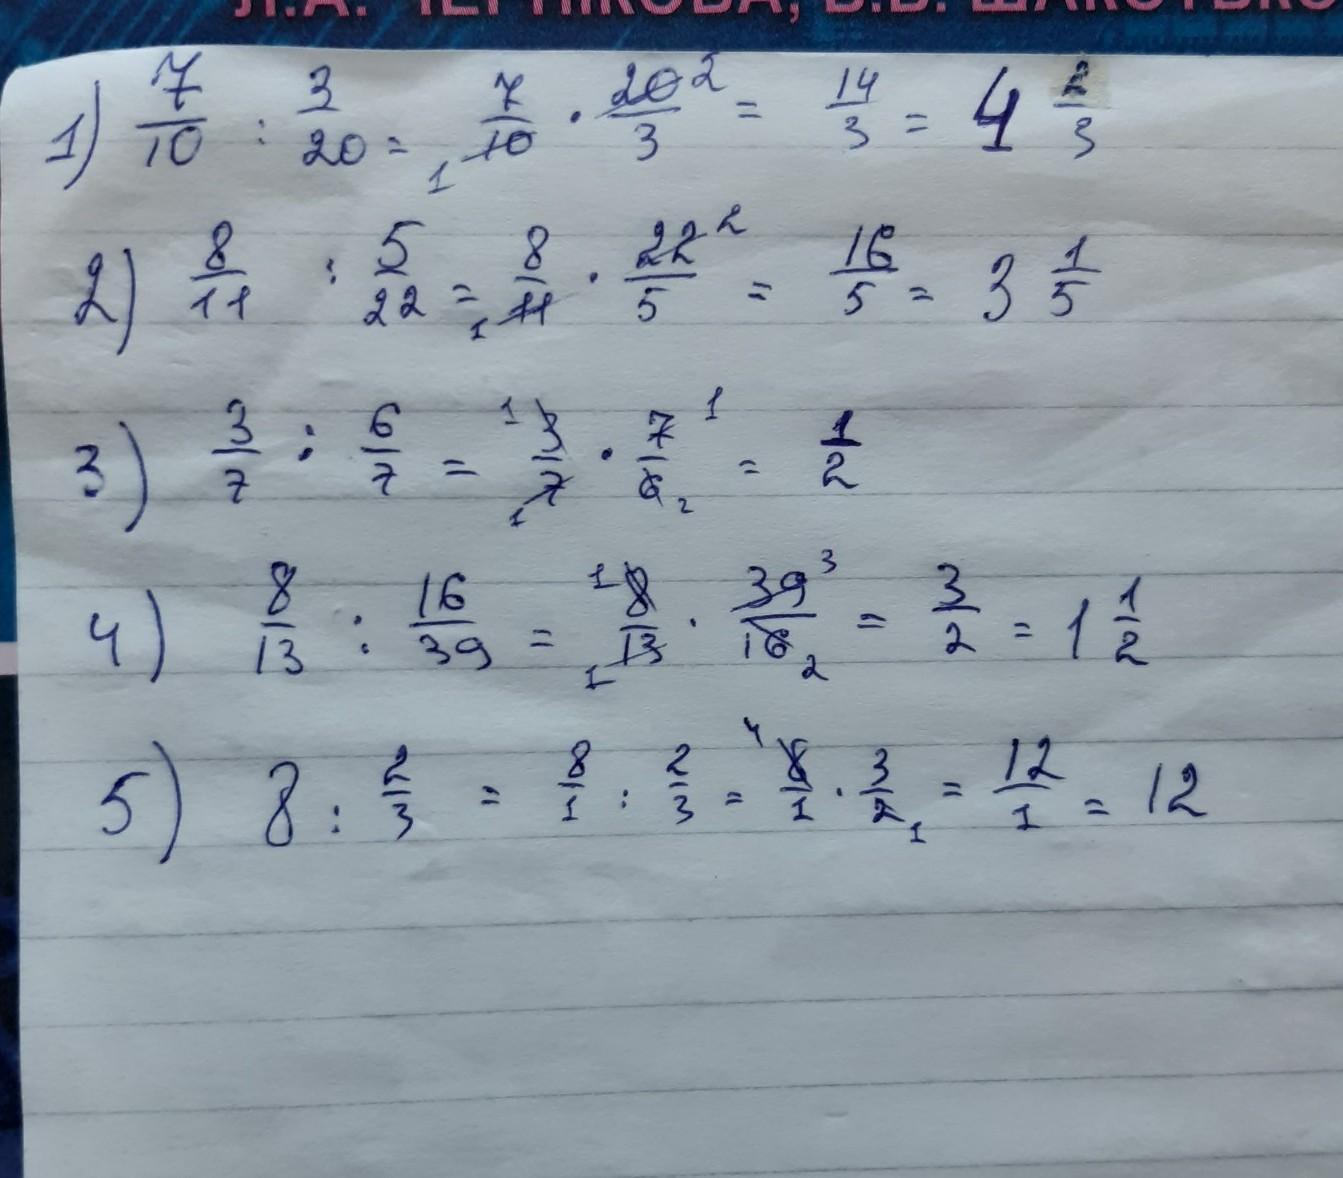 Л.А. ЧЕРНІКОВА, В.В.
1) 7/10 : 3/20 = 7/10 1 · 20/3 2 = 14/3 = 4 2/3
2) 8/11 : 5/22 = 8/11 1 · 22/5 2 = 16/5 = 3 1/5
3) 3/7 : 6/7 = 1 3/7 1 · 7/6 1 2 = 1/2
4) 8/13 : 16/39 = 1 8/13 1 · 39/16 3 2 = 3/2 = 1 1/2
5) 8 : 2/3 = 8/1 : 2/3 = 4 8/1 · 3/2 1 = 12/1 = 12